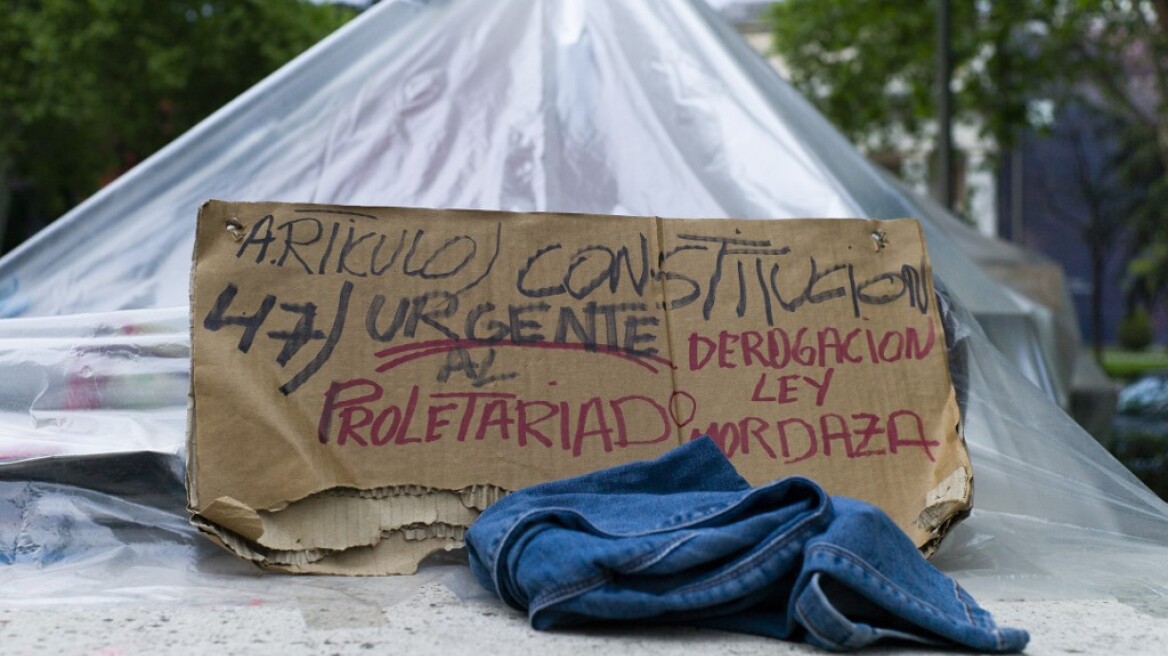 ARTIKULO) CONSTITUCION
47) URGENTE
AL
PROLETARIADO
DEROGACION
LEY
MORDAZA